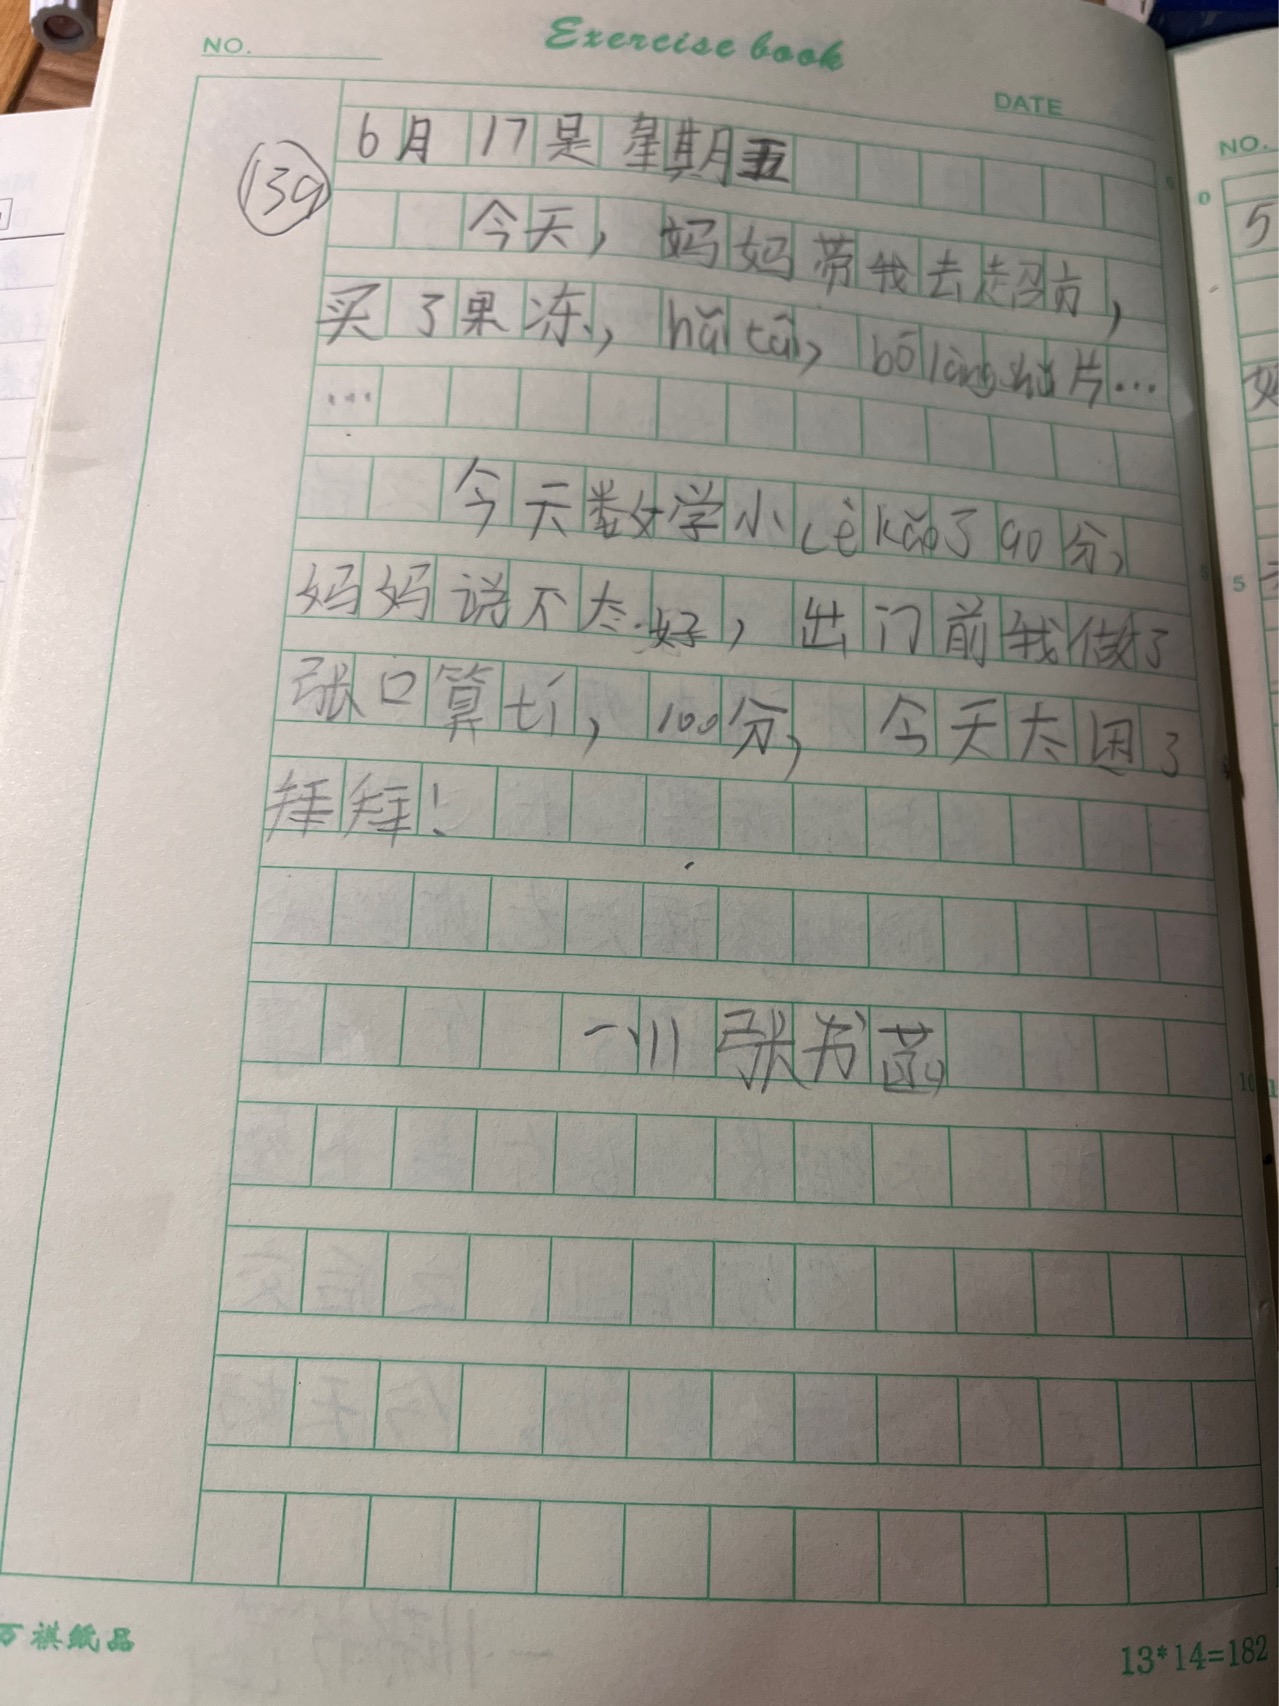 Exercise book
NO.
DATE
NO.
139
6月17是星期五
今天，妈妈带我去超市，
买了果冻，hǎi tái，bō làng 片…
…
今天数学小cè kǎo了90分，
妈妈说不太好，出门前我做了
张口算tí，100分，今天太困了
拜拜！
张书菡
5
0
5
10
纸品
13*14=182